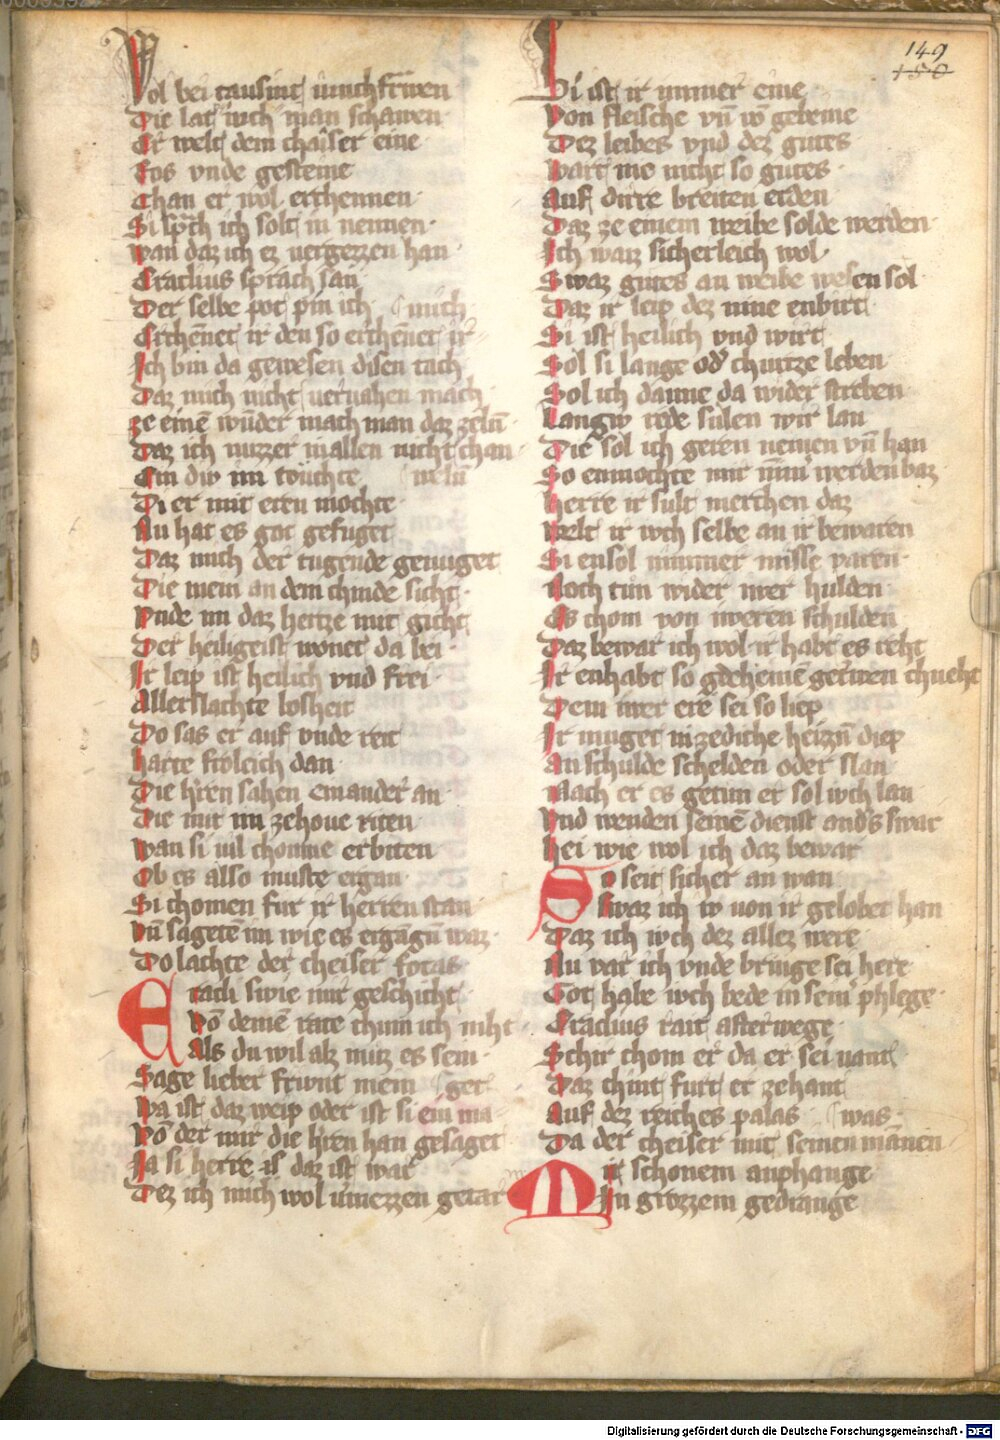 149
150
Wol bei tausint iunchfrwen
Die lat iuch man schawen
Er welt dem chaiser eine
Ros vnde gesteine
Chan er wol erchennen
Si sprach ich solt in nennen
wan daz ich ez uergezzen han
Eraclius sprach san
Der selbe pot pin ich
mich
Erchēnet ir den so erchēnet ir
Ich bin da gewesen disen tach
Daz mich nicht veruahen mach
ze einē wnder mach man daz zeln
Daz ich nuzzer in allen nicht chan
weln
Ein div mi touchte
Di er mit eren mochte
Nu hat es got gefuget
Daz mich der tugende genuget
Die mein an dem chinde sicht
Vnde im daz hertze mit gicht
Der heiligeist wonet da bei
Ir leip ist heilich vnd frei
Allerslachte losheit
Do sas er auf vnde reit
harte frolich dan
Die hren sahen einander an
Die mit im zehoue riten
wan si uil chomme erbiten
Ob es also muste ergan
Si chomen fur ir herren stan
Vn sagete im wie es ergangn was
Do lachte der cheiser focas
Erach swie mir geschicht
Vō deinē rate chum ich niht
Als du wil alz muz es sein
Sage lieber friwnt mein
get
Wa ist daz weip oder ist si ein ma
Vō der mir die hren han gesaget
Ja si herre is daz ist war
Dez ich mich wol uirmezzen getar
Di ist ir immer eine
Von fleische vn vō gebeine
Dez leibes vnd dez gutes
Wart nie nicht so gutes
Auf dirre breiten erden
Daz ze einem weibe solde werden
Ich waiz sicherleich wol
Swaz gutes an weibe wesen sol
Daz ir leip dez nine enbirt
Si ist heilich vnd wirt
Sol si lange od churtze leben
Sol ich danne da wider streben
Langiv rede sulen wir lan
Die sol ich geren nemen vn han
So enmochte mir nim werden baz
herre ir sult merchen daz
welt ir iwch selbe an ir bewaren
Si ensol nimmer misse varen
Noch tun wider iwer hulden
Es chom von iweren schulden
Daz bewar ich wol ir habt es reht
Ir enhabt so geheimē getriwen chneht
Dem iwer ere sei so liep
Ir muget in zediche heizn diep
An schulde schelden oder slan
Nach er es getun er sol iwch lan
Vnd wenden seinē dienst anders swar
hei wie wol ich daz bewar
So seit sicher an wan
Swaz ich iv uon ir gelobet han
Daz ich iwch dez allez were
Nu var ich vnde bringe sei here
Got habe iwch bede in seinr phlege
Eraclius rait after wege
Schir chom er da er sei uant
Daz chint furt er zehant
Auf dez reiches palas
was
Da der cheiser mit seinen mānen
Mit schonem anphange
In grozzem gedrange
Digitalisierung gefördert durch die Deutsche Forschungsgemeinschaft - DFG